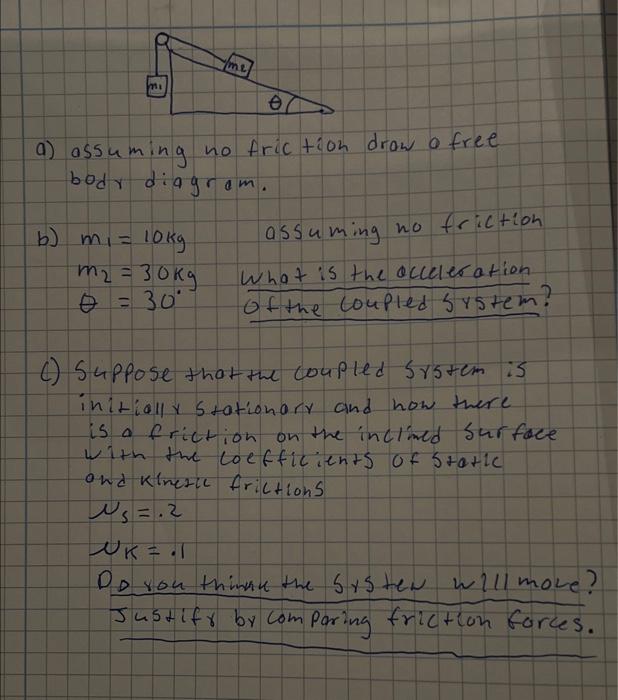 m1
m2
θ
a) assuming no friction draw a free
body diagram.
b) m1 = 10kg assuming no friction
m2 = 30kg What is the acceleration
θ = 30° of the coupled system?
c) Suppose that the coupled system is
initially stationary and now there
is a friction on the inclined surface
with the coefficients of static
and kinetic frictions
μs = .2
μK = .1
Do you think the system will move?
Justify by comparing friction forces.